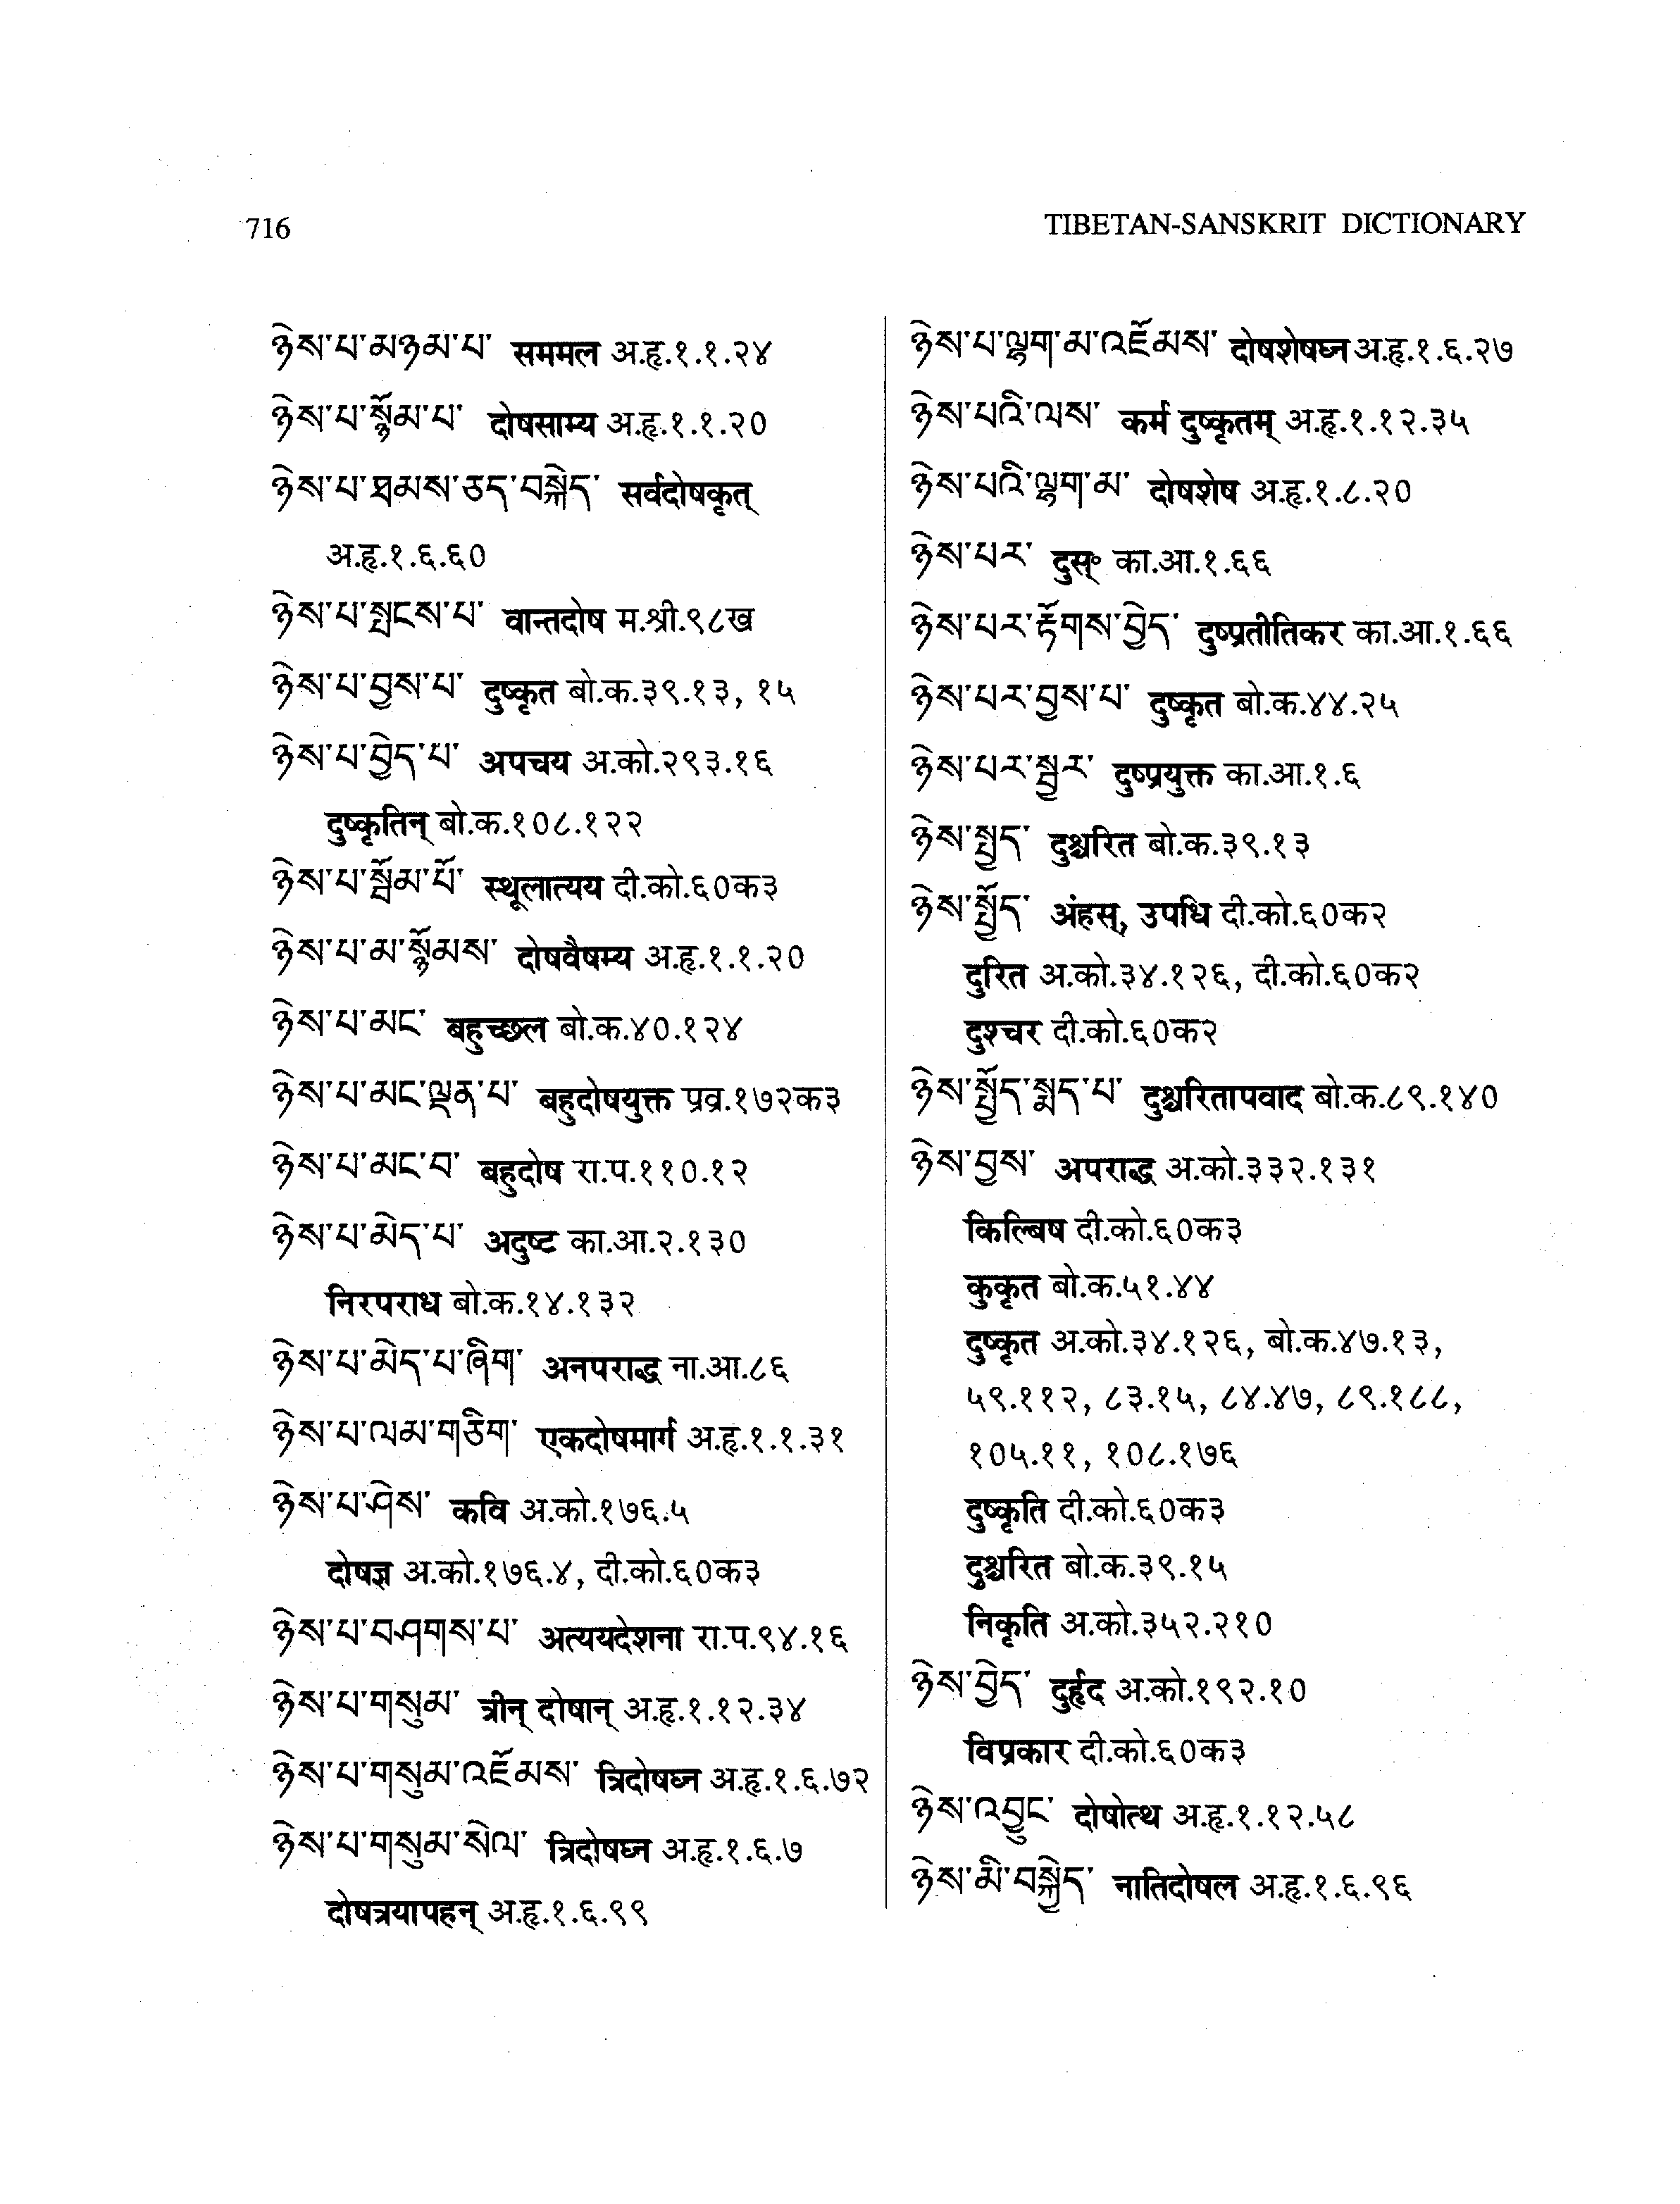 716
TIBETAN-SANSKRIT DICTIONARY
ཉེས་པ་མཉམ་པ་ सममल अ.हृ.१.१.२४
ཉེས་པ་སྙོམ་པ་ दोषसाम्य अ.हृ.१.१.२०
ཉེས་པ་ཐམས་ཅད་བསྐེད་ सर्वदोषकृत्
अ.हृ.१.६.६०
ཉེས་པ་སྤངས་པ་ वान्तदोष म.श्री.९८ख
ཉེས་པ་བྱས་པ་ दुष्कृत बो.क.३९.१३, १५
ཉེས་པ་བྱེད་པ་ अपचय अ.को.२९३.१६
दुष्कृतिन् बो.क.१०८.१२२
ཉེས་པ་སྦོམ་པོ་ स्थूलात्यय दी.को.६०क३
ཉེས་པ་མ་སྙོམས་ दोषवैषम्य अ.हृ.१.१.२०
ཉེས་པ་མང་ बहुच्छल बो.क.४०.१२४
ཉེས་པ་མང་ལྡན་པ་ बहुदोषयुक्त प्रव्र.१७२क३
ཉེས་པ་མང་བ་ बहुदोष रा.प.११०.१२
ཉེས་པ་མེད་པ་ अदुष्ट का.आ.२.१३०
निरपराध बो.क.१४.१३२
ཉེས་པ་མེད་པ་ཞིག་ अनपराद्ध ना.आ.८६
ཉེས་པ་ལམ་གཅིག་ एकदोषमार्ग अ.हृ.१.१.३१
ཉེས་པ་ཤེས་ कवि अ.को.१७६.५
दोषज्ञ अ.को.१७६.४, दी.को.६०क३
ཉེས་པ་བཤགས་པ་ अत्ययदेशना रा.प.९४.१६
ཉེས་པ་གསུམ་ त्रीन् दोषान् अ.हृ.१.१२.३४
ཉེས་པ་གསུམ་འཇོམས་ त्रिदोषघ्न अ.हृ.१.६.७२
ཉེས་པ་གསུམ་སེལ་ त्रिदोषघ्न अ.हृ.१.६.७
दोषत्रयापहन् अ.हृ.१.६.९९
ཉེས་པ་ལྷག་མ་འཇོམས་ दोषशेषघ्न अ.हृ.१.६.२७
ཉེས་པའི་ལས་ कर्म दुष्कृतम् अ.हृ.१.१२.३५
ཉེས་པའི་ལྷག་མ་ दोषशेष अ.हृ.१.८.२०
ཉེས་པར་ दुस्॰ का.आ.१.६६
ཉེས་པར་རྟོགས་བྱེད་ दुष्प्रतीतिकर का.आ.१.६६
ཉེས་པར་བྱས་པ་ दुष्कृत बो.क.४४.२५
ཉེས་པར་སྦྱར་ दुष्प्रयुक्त का.आ.१.६
ཉེས་སྤྱད་ दुश्चरित बो.क.३९.१३
ཉེས་སྤྱོད་ अंहस्, उपधि दी.को.६०क२
दुरित अ.को.३४.१२६, दी.को.६०क२
दुश्चर दी.को.६०क२
ཉེས་སྤྱོད་སྨད་པ་ दुश्चरितापवाद बो.क.८९.१४०
ཉེས་བྱས་ अपराद्ध अ.को.३३२.१३१
किल्बिष दी.को.६०क३
कुकृत बो.क.५१.४४
दुष्कृत अ.को.३४.१२६, बो.क.४७.१३,
५९.११२, ८३.१५, ८४.४७, ८९.१८८,
१०५.११, १०८.१७६
दुष्कृति दी.को.६०क३
दुश्चरित बो.क.३९.१५
निकृति अ.को.३५२.२१०
ཉེས་བྱེད་ दुर्हृद अ.को.१९२.१०
विप्रकार दी.को.६०क३
ཉེས་འབྱུང་ दोषोत्थ अ.हृ.१.१२.५८
ཉེས་མི་བསྐྱེད་ नातिदोषल अ.हृ.१.६.९६